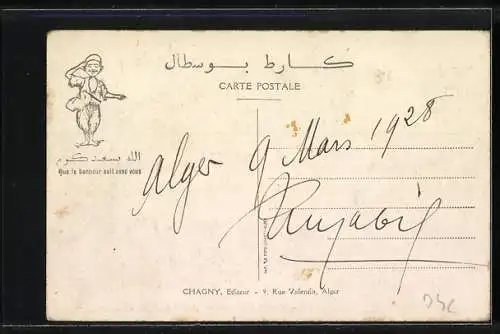 كارط بوسطال
CARTE POSTALE
الله يسعدكوم
Que le bonheur soit avec vous
Alger 9 Mars 1928
CHAGNY, Editeur - 9, Rue Valentin, Alger